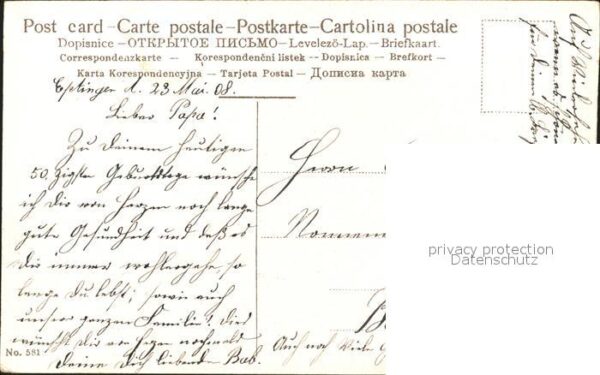 Post card – Carte postale – Postkarte – Cartolina postale
Dopisnice – ОТКРЫТОЕ ПИСЬМО – Levelező-Lap. – Briefkaart.
Correspondenzkarte – Korespondenční listek – Dopisnica – Brefkort –
Karta Korespondencyjna – Tarjeta Postal – Дописна карта
Esslingen d. 23 Mai. 08.
Lieber Papa!
Zu Deinem heutigen
50.zigsten Geburtstage wünsche
ich Dir von Herzen noch lange
gute Gesundheit und daß es
Dir immer wohlergehe, so
lange Du lebst; sowie auch
unserer ganzen Familie! Dies
wünscht Dir von Herzen nochmals
Deine Dich liebende Bab.
No. 581
Herrn
Auch noch viele
Auf Wiedersehen
privacy protection
Datenschutz